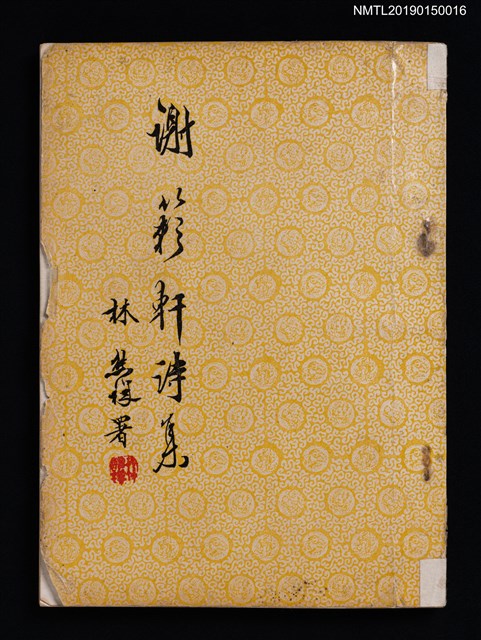 NMTL20190150016
謝籟軒詩集
林熊祥署